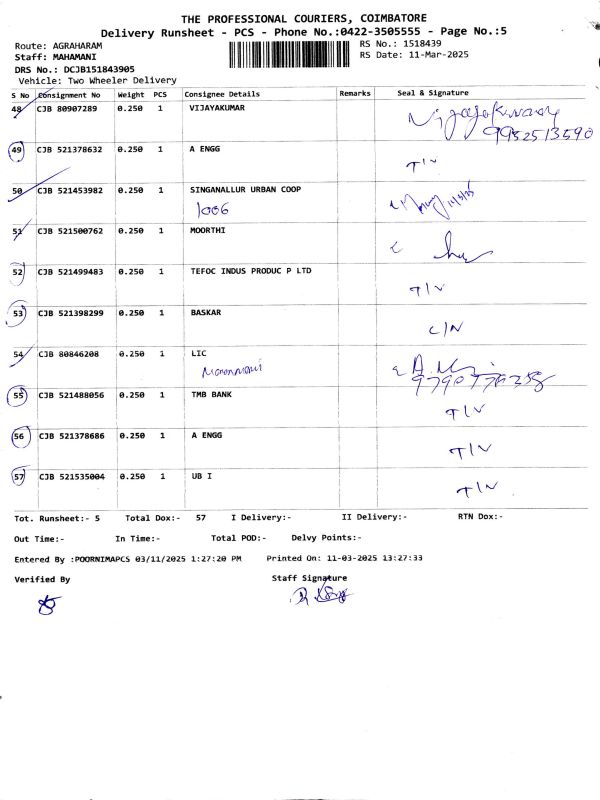 THE PROFESSIONAL COURIERS, COIMBATORE
Delivery Runsheet - PCS - Phone No.:0422-3505555 - Page No.:5
Route: AGRAHARAM RS No.: 1518439
Staff: MAHAMANI RS Date: 11-Mar-2025
DRS No.: DCJB151843905
Vehicle: Two Wheeler Delivery
S No Consignment No Weight PCS Consignee Details Remarks Seal & Signature
48 CJB 80907289 0.250 1 VIJAYAKUMAR
9952513590
49 CJB 521378632 0.250 1 A ENGG T/N
50 CJB 521453982 0.250 1 SINGANALLUR URBAN COOP
1006 11/3/25
51 CJB 521500762 0.250 1 MOORTHI
52 CJB 521499483 0.250 1 TEFOC INDUS PRODUC P LTD T/N
53 CJB 521398299 0.250 1 BASKAR C/N
54 CJB 80846208 0.250 1 LIC
55 CJB 521488056 0.250 1 TMB BANK T/N
56 CJB 521378686 0.250 1 A ENGG T/N
57 CJB 521535004 0.250 1 UB I T/N
Tot. Runsheet:- 5 Total Dox:- 57 I Delivery:- II Delivery:- RTN Dox:-
Out Time:- In Time:- Total POD:- Delvy Points:-
Entered By :POORNIMAPCS 03/11/2025 1:27:20 PM Printed On: 11-03-2025 13:27:33
Verified By Staff Signature